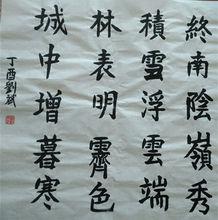 終南陰嶺秀
積雪浮雲端
林表明霽色
城中增暮寒
丁酉劉斌